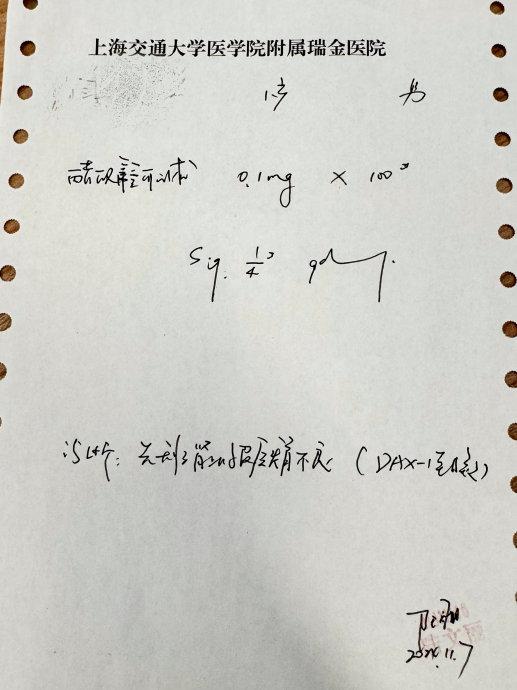 上海交通大学医学院附属瑞金医院
1岁 男
醋酸氟氢可的松 0.1mg × 100#
Sig. 1/4# qd
诊断: 先天性肾上腺发育不良 (DAX-1突变)
2024.11.7